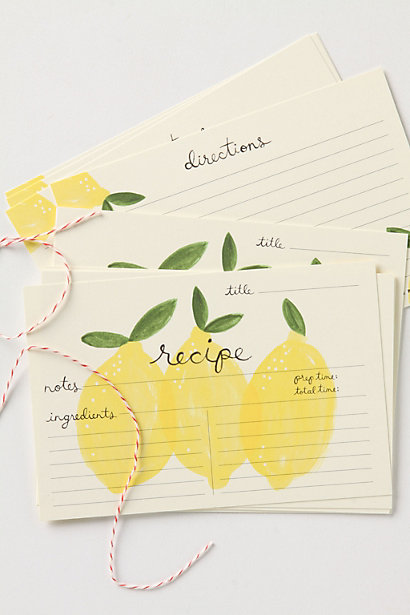 directions
title
title
recipe
notes
prep time:
total time:
ingredients